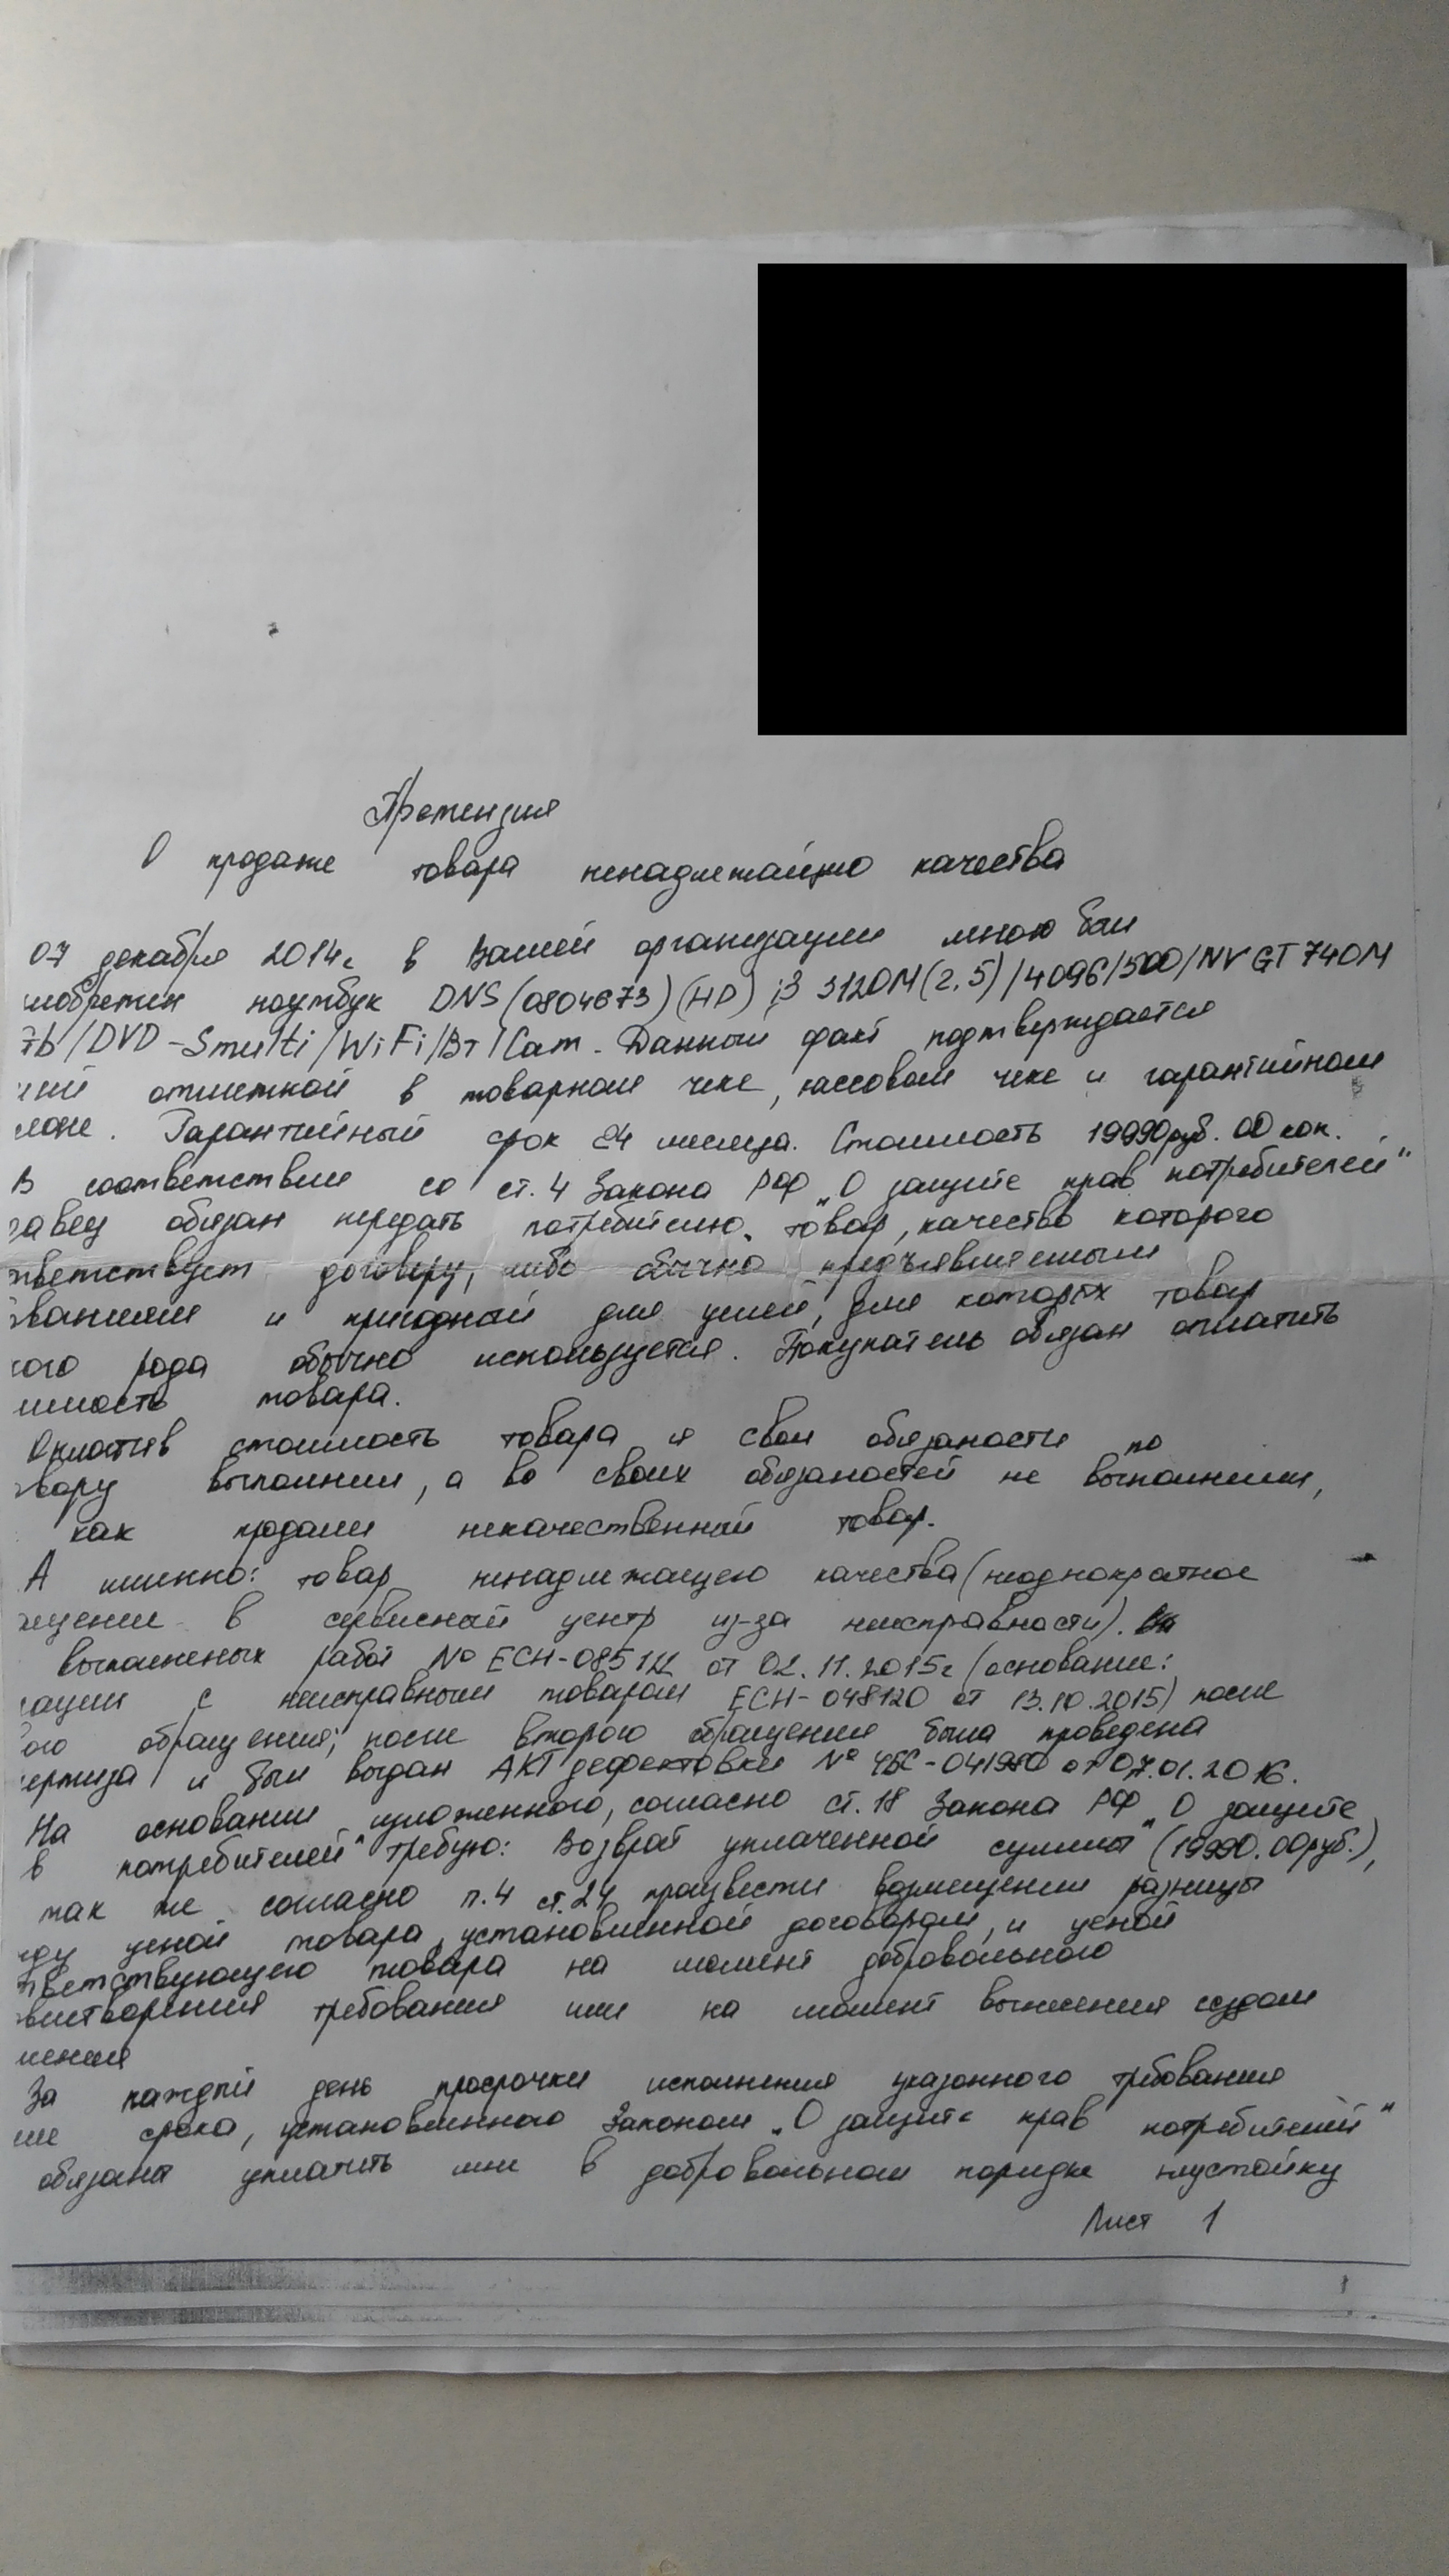 Претензия
О продаже товара ненадлежащего качества
07 декабря 2014г в вашей организации мною был
иобретен ноутбук DNS (0804673) (HD) i3 3120M(2,5)/4096/500/NV GT740M
7b/DVD-Smulti/WiFi/BT/Cam. Данный факт подтверждается
отметкой в товарном чеке, кассовом чеке и гарантийном
лоне. Гарантийный срок 24 месяца. Стоимость 19990руб. 00 коп.
В соответствии со ст. 4 Закона РФ „О защите прав потребителей"
давец обязан передать потребителю товар, качество которого
тветствует договору, либо обычно предъявляемым
ваниям и пригодный для целей, для которых товар
кого рода обычно используется. Покупатель обязан оплатить
имость товара.
Оплатив стоимость товара я свои обязаности по
вору выполнил, а вы своих обязаностей не выполнили,
как продали некачественный товар.
А именно: товар ненадлежащего качества (неоднократное
щение в сервисный центр из-за неисправности).
выполненых работ № ЕСН-085 от 02.11.2015г (основание:
ации с неисправным товаром ЕСН-048120 от 13.10.2015) после
ого обращения; после второго обращения была проведена
ертиза и был выдан АКТ дефектовки № от 07.01.2016.
На основании изложенного, согласно ст. 18 Закона РФ „О защите
в потребителей" требую: Возврат уплаченной суммы (19990.00руб.),
так же согласно п.4 ст.24 произвести возмещение разницы
ду ценой товара, установленной договором, и ценой
тветствующего товара на момент добровольного
влетворения требования или на момент вынесения судом
шения
За каждый день просрочки исполнения указанного требования
ше срока, установленного Законом „О защите прав потребителей"
обязана уплатить мне в добровольном порядке неустойку
Лист 1